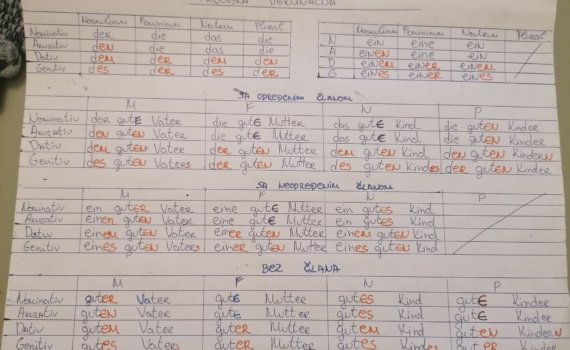 DEKLINACIJA
Maskulinum Femininum Neutrum Plural
Nominativ der die das die
Akuzativ dEN die das die
Dativ dEM dER dEM dEN
Genitiv dES dER dES dER
Maskulinum Femininum Neutrum Plural
N ein eine ein
A einEN eine ein
D einEM einER einEM
G einES einER einES
SA ODREĐENIM ČLANOM
M F N P
Nominativ der gutE Vater die gutE Mutter das gutE Kind die gutEN Kinder
Akuzativ dEN gutEN Vater die gutE Mutter das gutE Kind die gutEN Kinder
Dativ dEM gutEN Vater dER gutEN Mutter dEM gutEN Kind dEN gutEN KinderN
Genitiv dES gutEN Vaters dER gutEN Mutter dES gutEN Kindes dER gutEN Kinder
SA NEODREĐENIM ČLANOM
M F N P
Nominativ ein gutER Vater eine gutE Mutter ein gutES Kind
Akuzativ einEN gutEN Vater eine gutE Mutter ein gutES Kind
Dativ einEM gutEN Vater einER gutEN Mutter einEM gutEN Kind
Genitiv einES gutEN Vaters einER gutEN Mutter einES gutEN Kind
BEZ ČLANA
M F N P
Nominativ gutER Vater gutE Mutter gutES Kind gutE Kinder
Akuzativ gutEN Vater gutE Mutter gutES Kind gutE Kinder
Dativ gutEM Vater gutER Mutter gutEM Kind gutEN KinderN
Genitiv gutES Vaters gutER Mutter gutES Kind gutER Kinder